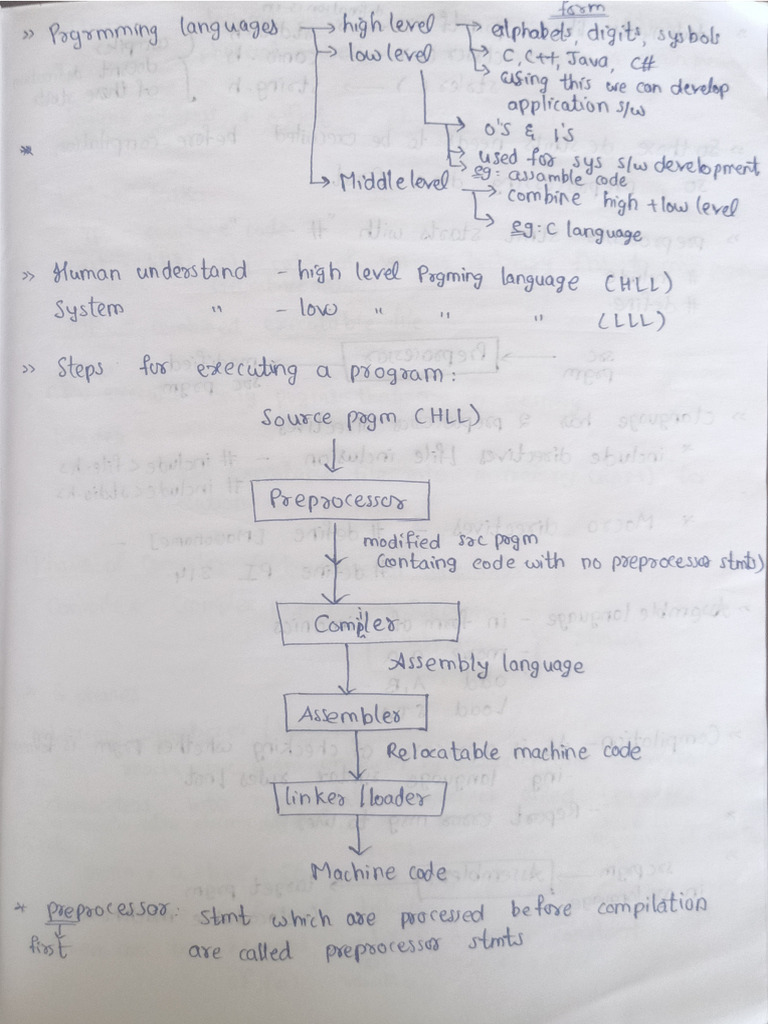 form
» Prgrmming languages → high level → alphabets, digits, symbols
→ low level → C, C++, Java, C#
→ using this we can develop
application s/w
→ 0's & 1's
*
→ used for sys s/w development
eg: assamble code
→ Middle level → combine high + low level
→ eg: C language
» Human understand - high level Prgming language (HLL)
System " - low " " " (LLL)
» Steps for executing a program:
Source prgm (HLL)
Preprocessor
modified src prgm
(containg code with no preprocessor stmts)
Compiler
Assembly language
Assembler
Relocatable machine code
linker / loader
Machine code
* preprocessor: stmt which are processed before compilation
first are called preprocessor stmts